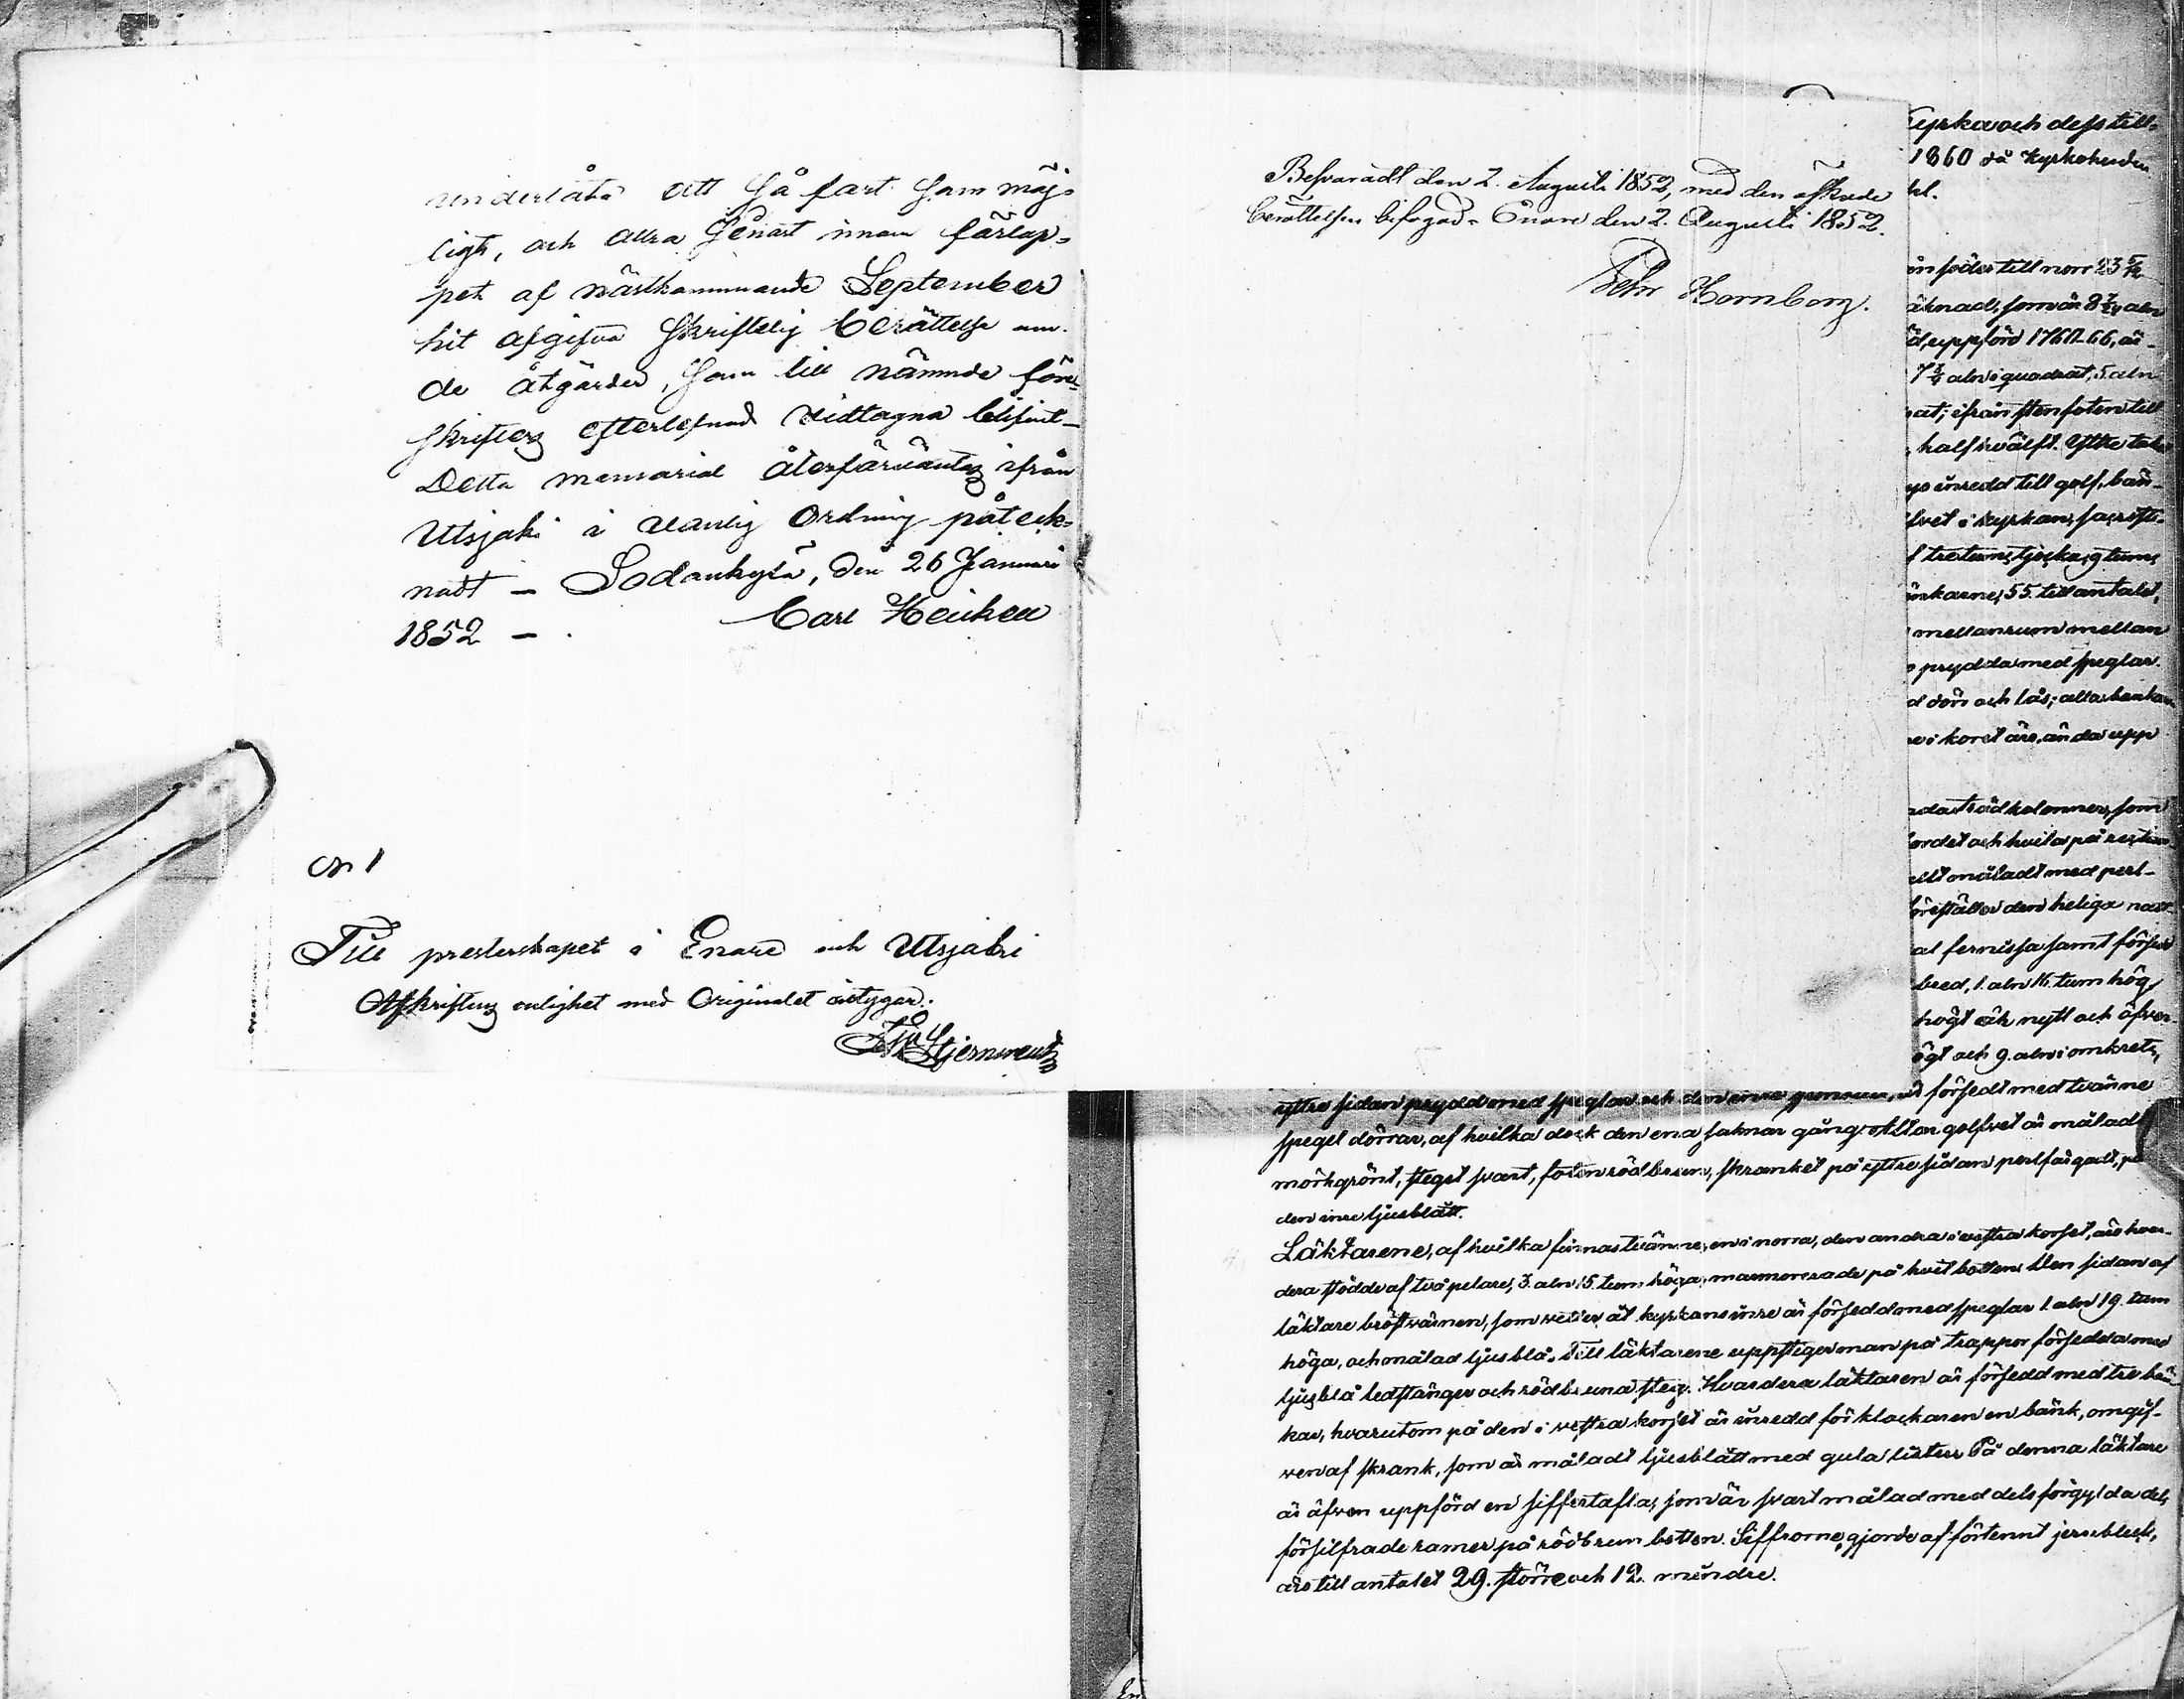 underlåta att så fart som möj-
ligt, och allra senast innan förlop-
pet af nästkommande September
hit afgifva skriftelig berättelse om
de åtgärder, som till nämnde före-
skrifters efterlefnad vidtagna blifvit_
Detta memorial återförväntas ifrån
Utsjoki i vanlig Ordning påteck-
nadt — Sodankylä, den 26 Januari
1852 — . Carl Heickell
N 1
Till presterskapet i Enare och Utsjoki
Afskriftens enlighet med Originalet intygar.
Stjerncreutz
Besvaradt den 2. Augusti 1852, med den äskade
berättelsen bifogad. Enare den 2. Augusti 1852.
Pehr Hornborg.
kyrka och dess till-
1860 då kyrkoherden
kt.
in söder till norr 23
aknad, som är 8 aln
d, uppförd 1760-66, är
7 3/4 aln i quadrat, 5 aln
at; ifrån stenfoten till
, half hvälft. Yttre taket
inredd till golf, bän-
fvet i kyrkan, sacristi-
tretums tjocka, 9 tums
änkarne, 55. till antalet,
mellanrum mellan
prydda med speglar.
d dörr och lås; alla bänkar
i koret äro, ända upp
kolonner, som
ordet och hvila på
måladt med perl-
öreställer den heliga natt
al fernissa samt försedd
bred, 1. aln 16 tum hög,
högt och nytt och äfven
ögt och 9. aln i omkrets,
yttre sidan prydd med speglar och den inre försedt med tvänne
spegel dörrar, af hvilka dock den ena saknar gång. Altar golfvet är måladt
mörkgrönt, steget svart, foten rödbrun, skranket på yttre sidan perlfärgadt, på
den inre ljusblått.
Läktarene, af hvilka finnas tvänne, en i norra, den andra i vestra korset, äro hvar-
dera stödde af två pelare, 3. aln 15. tum höga, marmorerade på hvit botten. Den sidan af
läktare bröstvärnen, som vetter åt kyrkans inre är försedd med speglar 1. aln 19. tum
höga, och målad ljusblå. Till läktarene uppstiger man på trappor försedda med
ljusblå ledstänger och rödbruna steg. Hvardera läktaren är försedd med tre bän-
kar, hvarutom på den i vestra korset är inredd för klockaren en bänk, omgif-
ven af skrank, som är måladt ljusblått med gula lister. På denna läktare
är äfven uppförd en siffertafla, som är svart målad med dels förgylda dels
försilfrade ramer på rödbrun botten. Siffrorne, gjorde af förtennt jernbleck,
äro till antalet 29. större och 12. mindre.